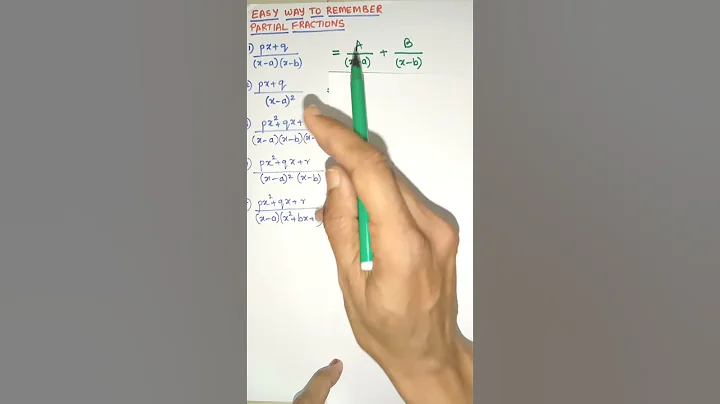 EASY WAY TO REMEMBER
PARTIAL FRACTIONS
1) px+q / (x-a)(x-b) = A / (x-a) + B / (x-b)
px+q / (x-a)² =
px²+qx+ / (x-a)(x-b)(x-
px²+qx+r / (x-a)² (x-b)
px²+qx+r / (x-a)(x²+bx+